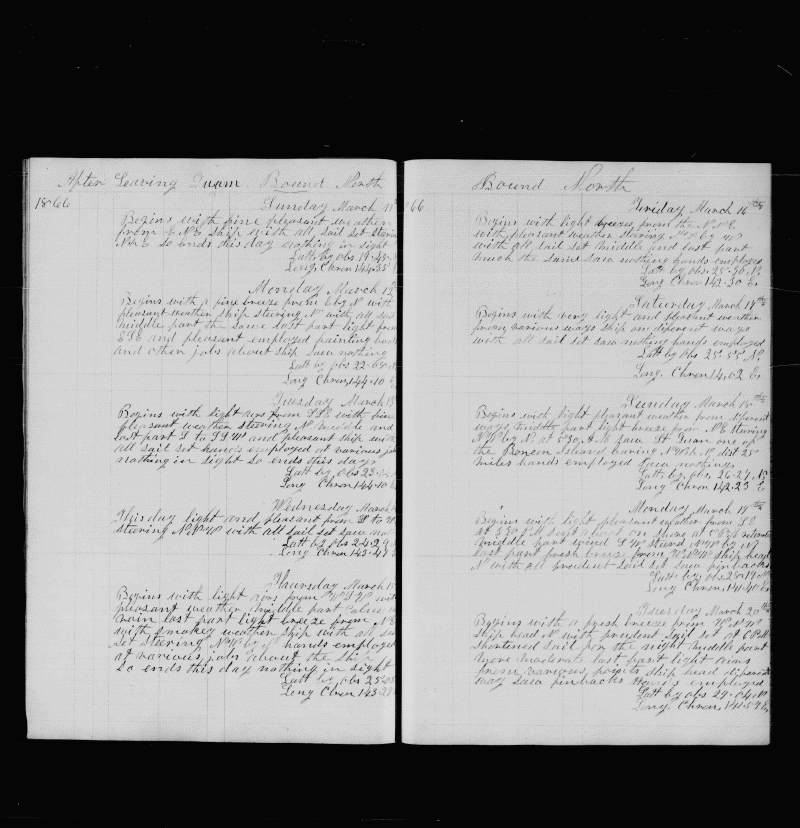 After Leaving Guam. Bound North
1866
Sunday March 11
Begins with fine pleasant weather
from E.N.E ship with all sail set steering
N & E So ends this day nothing in sight
Latt by obs 19.
Long. Chron 144.35
Monday March 12
Begins with a fine breeze from E by N with
pleasant weather ship steering N with all sail
middle part the same last part light from
ESE and pleasant employed painting
and other jobs about ship Saw nothing
Latt by obs 22.
Long Chron 144.10
Tuesday March 13
Begins with light airs from SSE with fine
pleasant weather steering N middle and
last part S to SSW and pleasant ship with
all sail set hands employed at various jobs
nothing in sight So ends this day
Latt by obs 23
Long Chron 144.10
Wednesday March
This day light and pleasant from S to W
steering N.N.W with all sail set saw no
Latt by Obs 24.29
Long Chron 143.47
Thursday March 15
Begins with light airs from W.S.W with
pleasant weather middle part calm
last part light breeze from N.E
with smokey weather ship with all sail
set Steering N.W. by hands employed
at various jobs about the Ship
So ends this day nothing in sight
Latt by obs 25.05
Long Chron 143.28
Bound North
66
Friday March 16th
Begins with light breeze from the N.N.E
with pleasant weather steering
with all sail set middle and last part
much the same saw nothing hands employed
Latt by obs. 25.36 N.
Long Chron 143.30 E.
Saturday March 17th
Begins with very light and pleasant weather
from various ways ship on diferent ways
with all sail set saw nothing hands employed
Latt by Obs 25.55 N.
Long. Chron 14.02 E.
Sunday March 18th
Begins with light pleasant weather from diferent
ways middle part light breeze from N.E steering
N.W by N. at 5.30 A.M saw St. Juan one of
the Boneen Island bearing N.W dist 25
miles hands employed saw nothing
Latt by obs, 26.27 N.
Long Chron 142.23 E.
Monday March 19th
Begins with light pleasant weather from S.E
at 3.30 P.M sent a boat on shore at 5 P.M returned
middle part wind S.W steard N.W by N
last part fresh breeze from W.N.W ship head
N with all prudent sail set saw finbacks
Latt by obs 28.19 N.
Long Chron 141.40 E.
Tuesday March 20th
Begins with a fresh breeze from W.N.W
Ship head N with prudent sail set at 6 P.M
shortened sail for the night middle part
more moderate last part light airs
from various points ship head diferent
way saw finbacks employed
Latt by obs 29.04 N
Long. Chron. 141.57 E.